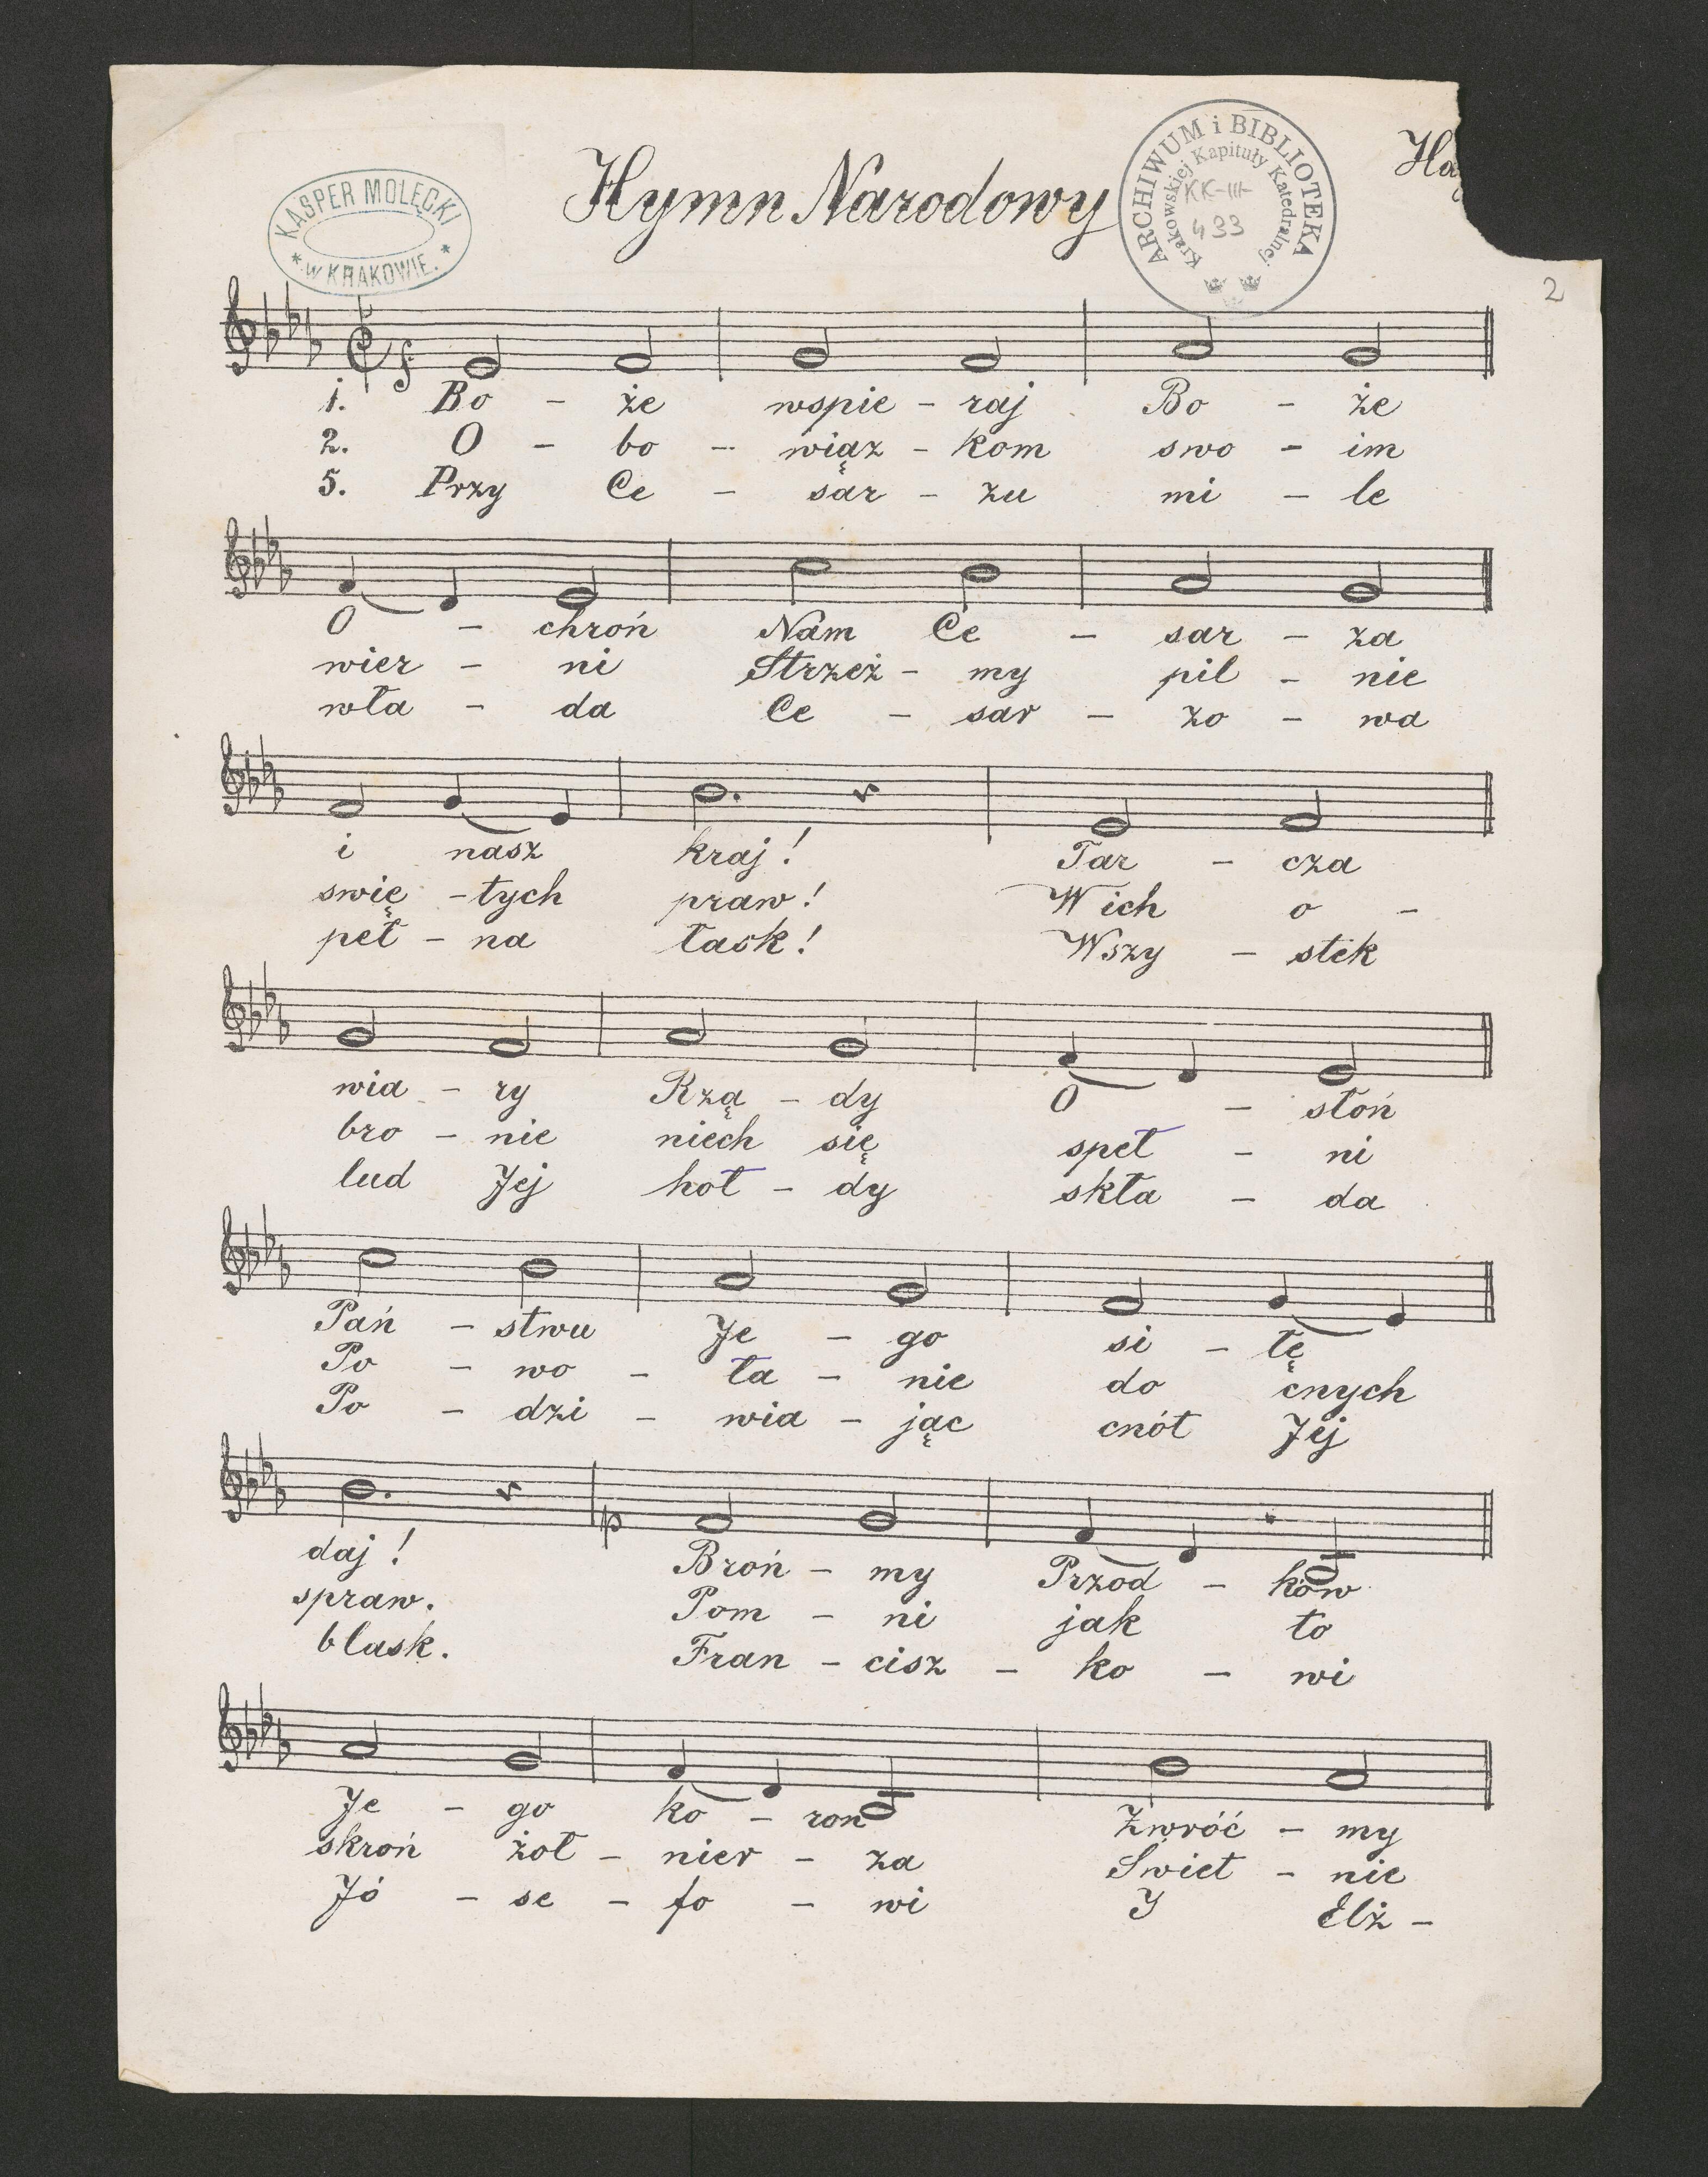 Hymn Narodowy
Ha
KASPER MOLĘCKI
* W KRAKOWIE. *
ARCHIWUM i BIBLIOTEKA
Krakowskiej Kapituły Katedralnej
KK-III-
433
2
f
1. Bo - że wspie - raj Bo - że
2. O - bo - wiąz - kom swo - im
5. Przy Ce - sar - zu mi - le
O - chroń Nam Ce - sar - za
wier - ni Strzeż - my pil - nie
wła - da Ce - sar - zo - wa
i nasz kraj!
Tar - cza
swię - tych praw!
W ich o -
peł - na łask!
Wszy - stek
wia - ry Rzą - dy O - słoń
bro - nie niech się speł - ni
lud Jej hoł - dy skła - da
Pań - stwu Je - go si - łę
Po - wo - ła - nie do cnych
Po - dzi - wia - jąc cnót Jej
daj! Broń - my Przod - ków
spraw. Pom - ni jak to
blask. Fran - cisz - ko - wi
Je - go ko - ron Zwróć - my
skroń żoł - nier - za Świet - nie
Jó - se - fo - wi Y Elż -